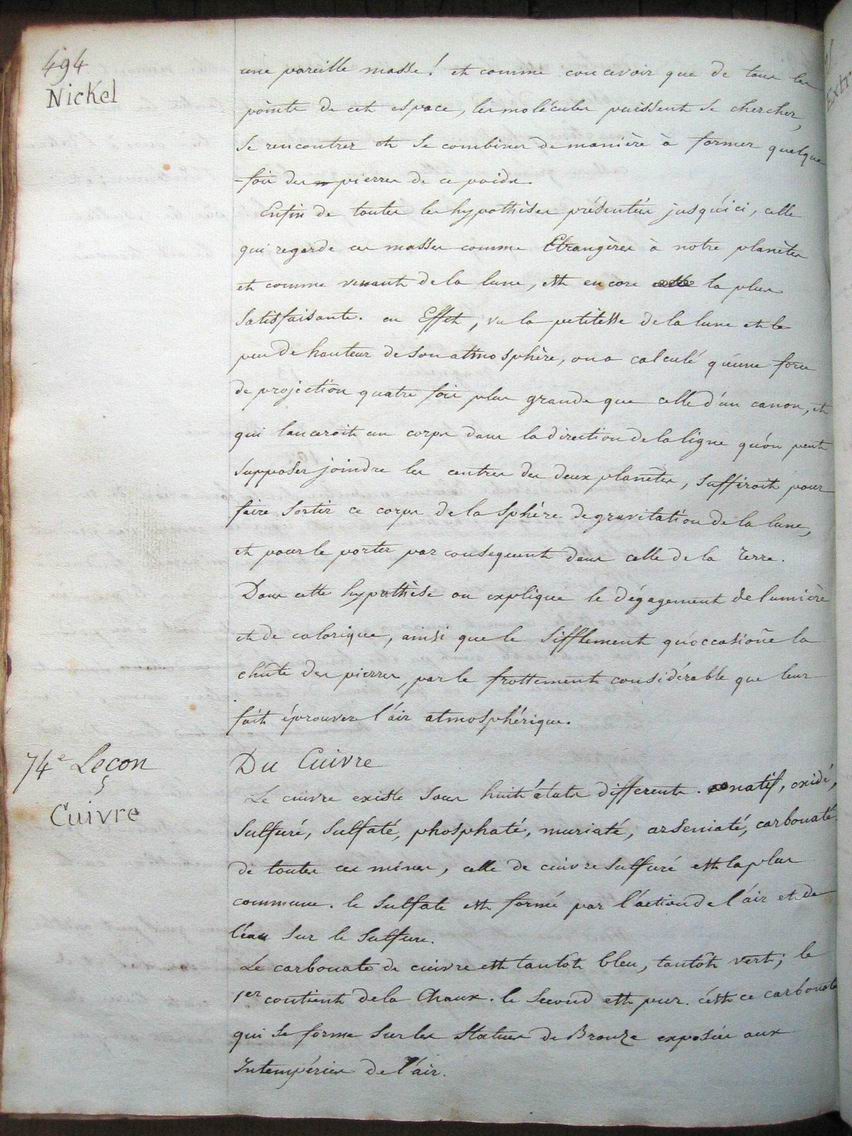 494
Nickel
une pareille masse! et comme concevoir que de tous les
points de cet espace, les molécules puissent se chercher,
se rencontrer et se combiner de manière à former quelque
fois des pierres de ce poids.
Enfin de toutes les hypothèses présentées jusqu'ici, celle
qui regarde ces masses comme Etrangères à notre planète
et comme venant de la lune, est encore la plus
satisfaisante. en Effet, vu la petitesse de la lune et le
peu de hauteur de son atmosphère, on a calculé qu'une force
de projection quatre fois plus grande que celle d'un canon, et
qui lanceroit un corps dans la direction de la ligne qu'on peut
supposer joindre les centres des deux planètes, suffiroit pour
faire sortir ce corps de la sphère de gravitation de la lune,
et pour le porter par consequent dans celle de la Terre.
Dans cette hypothèse on explique le dégagement de lumière
et de calorique, ainsi que le sifflement qu'occasioñe la
chute des pierres, par le frottement considérable que leur
fait éprouver l'air atmosphérique.
74e Leçon
Cuivre
Du Cuivre
Le cuivre existe sous huit états differents. natif, oxidé,
sulfuré, sulfaté, phosphaté, muriaté, arseniaté, carbonaté.
de toutes ces mines, celle de cuivre sulfuré est la plus
commune. le sulfate est formé par l'action de l'air et de
l'eau sur le sulfure.
Le carbonate de cuivre est tantôt bleu, tantôt vert; le
1er contient de la Chaux. le second est pur. c'est ce carbonate
qui se forme sur les statues de Bronze exposées aux
Intempéries de l'air.